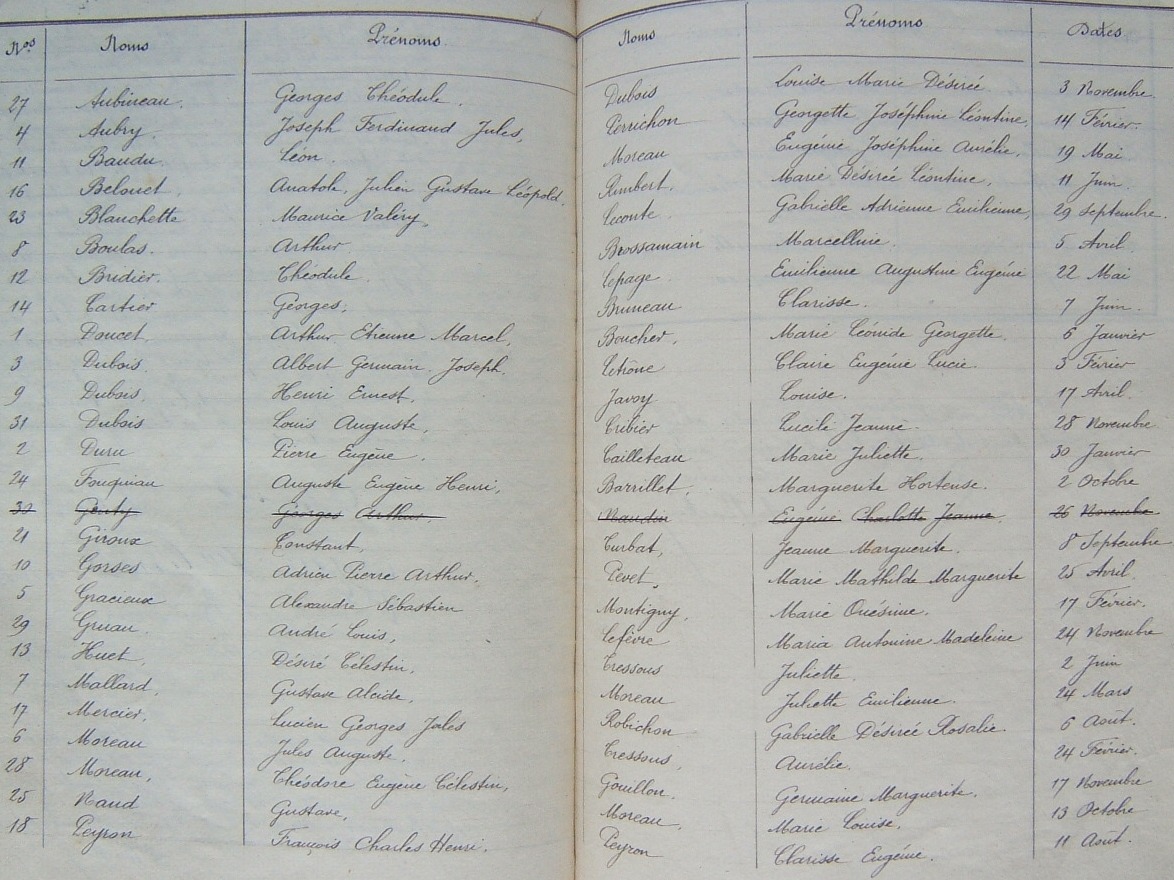 Nos Noms Prénoms Noms Prénoms Dates
27 Aubineau. Georges Théodule. Dubois Louise Marie Désirée 3 Novembre.
4 Aubry. Joseph Ferdinand Jules, Perrichon Georgette Joséphine Léontine, 14 Février.
11 Baudu. Léon. Moreau Eugénie Joséphine Aurélie. 19 Mai
16 Belouet. Anatole, Julien Gustave Léopold. Rimbert. Marie Désirée Léontine, 11 Juin.
23 Blanchette Maurice Valéry, Leconte. Gabrielle Adrienne Emilienne, 29 Septembre.
8 Boulas. Arthur Brossamain Marcelline. 5 Avril
12 Bridier. Théodule Lepage Emilienne Augustine Eugénie 22 Mai
14 Cartier Georges, Bruneau Clarisse. 7 Juin.
1 Doucet. Arthur Etienne Marcel, Boucher, Marie Léonide Georgette. 6 Janvier
3 Dubois. Albert Germain Joseph. Letrône Claire Eugénie Lucie. 3 Février
9 Dubois. Henri Ernest, Javoy Louise. 17 Avril.
31 Dubois Louis Auguste, Tribier Lucile Jeanne. 28 Novembre
2 Duru Pierre Eugène. Cailleteau Marie Juliette, 30 Janvier
24 Fouquiau Auguste Eugène Henri, Barrillet. Marguerite Hortense. 2 Octobre
30 Genty Georges Arthur. Naudin Eugénie Charlotte Jeanne. 26 Novembre
21 Giroux Constant, Turbat, Jeanne Marguerite. 8 Septembre
10 Gorses Adrien Pierre Arthur. Pevet, Marie Mathilde Marguerite 25 Avril.
5 Gracieux Alexandre Sébastien Montigny, Marie Onésime. 17 Février.
29 Gruau. André Louis, Lefèvre Maria Antonine Madeleine 24 Novembre
13 Huet, Désiré Célestin, Tressous Juliette. 2 Juin
7 Mallard, Gustave Alcide, Moreau Juliette Emilienne. 24 Mars
17 Mercier, Lucien Georges Jules Robichon Gabrielle Désirée Rosalie. 6 Août.
6 Moreau Jules Auguste. Tressous, Aurélie. 24 Février.
28 Moreau, Théodore Eugène Célestin, Gouillon. Germaine Marguerite. 17 Novembre
25 Naud Gustave, Moreau, Marie Louise, 13 Octobre
18 Peyron François Charles Henri. Peyron Clarisse Eugénie. 11 Août.